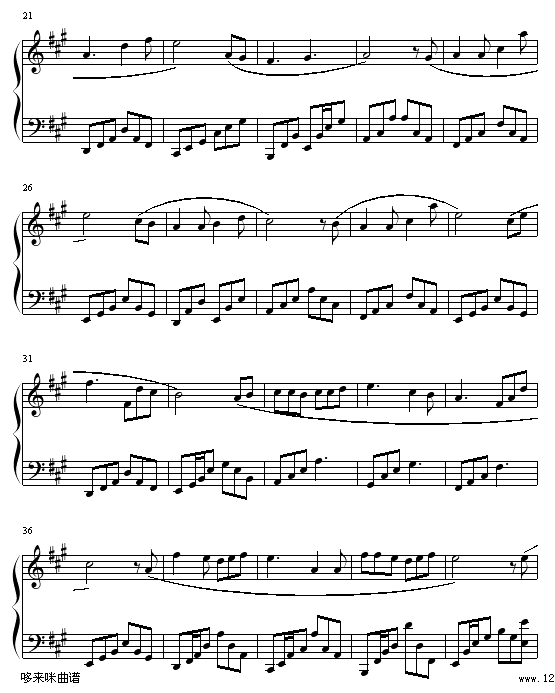 21
26
31
36
哆来咪曲谱
www.12